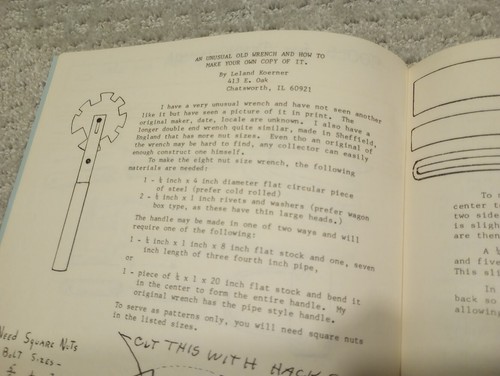 AN UNUSUAL OLD WRENCH AND HOW TO
MAKE YOUR OWN COPY OF IT.
By Leland Koerner
413 E. Oak
Chatsworth, IL 60921
I have a very unusual wrench and have not seen another
like it but have seen a picture of it in print. The
original maker, date, locale are unknown. I also have a
longer double end wrench quite similar, made in Sheffield,
England that has more nut sizes. Even tho an original of
the wrench may be hard to find, any collector can easily
enough construct one himself.
To make the eight nut size wrench, the following
materials are needed:
1 - ¼ inch x 4 inch diameter flat circular piece
of steel (prefer cold rolled)
2 - ¼ inch x 1 inch rivets and washers (prefer wagon
box type, as these have thin large heads.)
The handle may be made in one of two ways and will
require one of the following:
1 - ¼ inch x 1 inch x 8 inch flat stock and one, seven
inch length of three fourth inch pipe,
or
1 - piece of ¼ x 1 x 20 inch flat stock and bend it
in the center to form the entire handle. My
original wrench has the pipe style handle.
To serve as patterns only, you will need square nuts
in the listed sizes.
NEED SQUARE NUTS
BOLT SIZES-
CUT THIS WITH HACK
To
center t
two side
is sligh
are then
A
and five
This sli
In
hack so
allowing